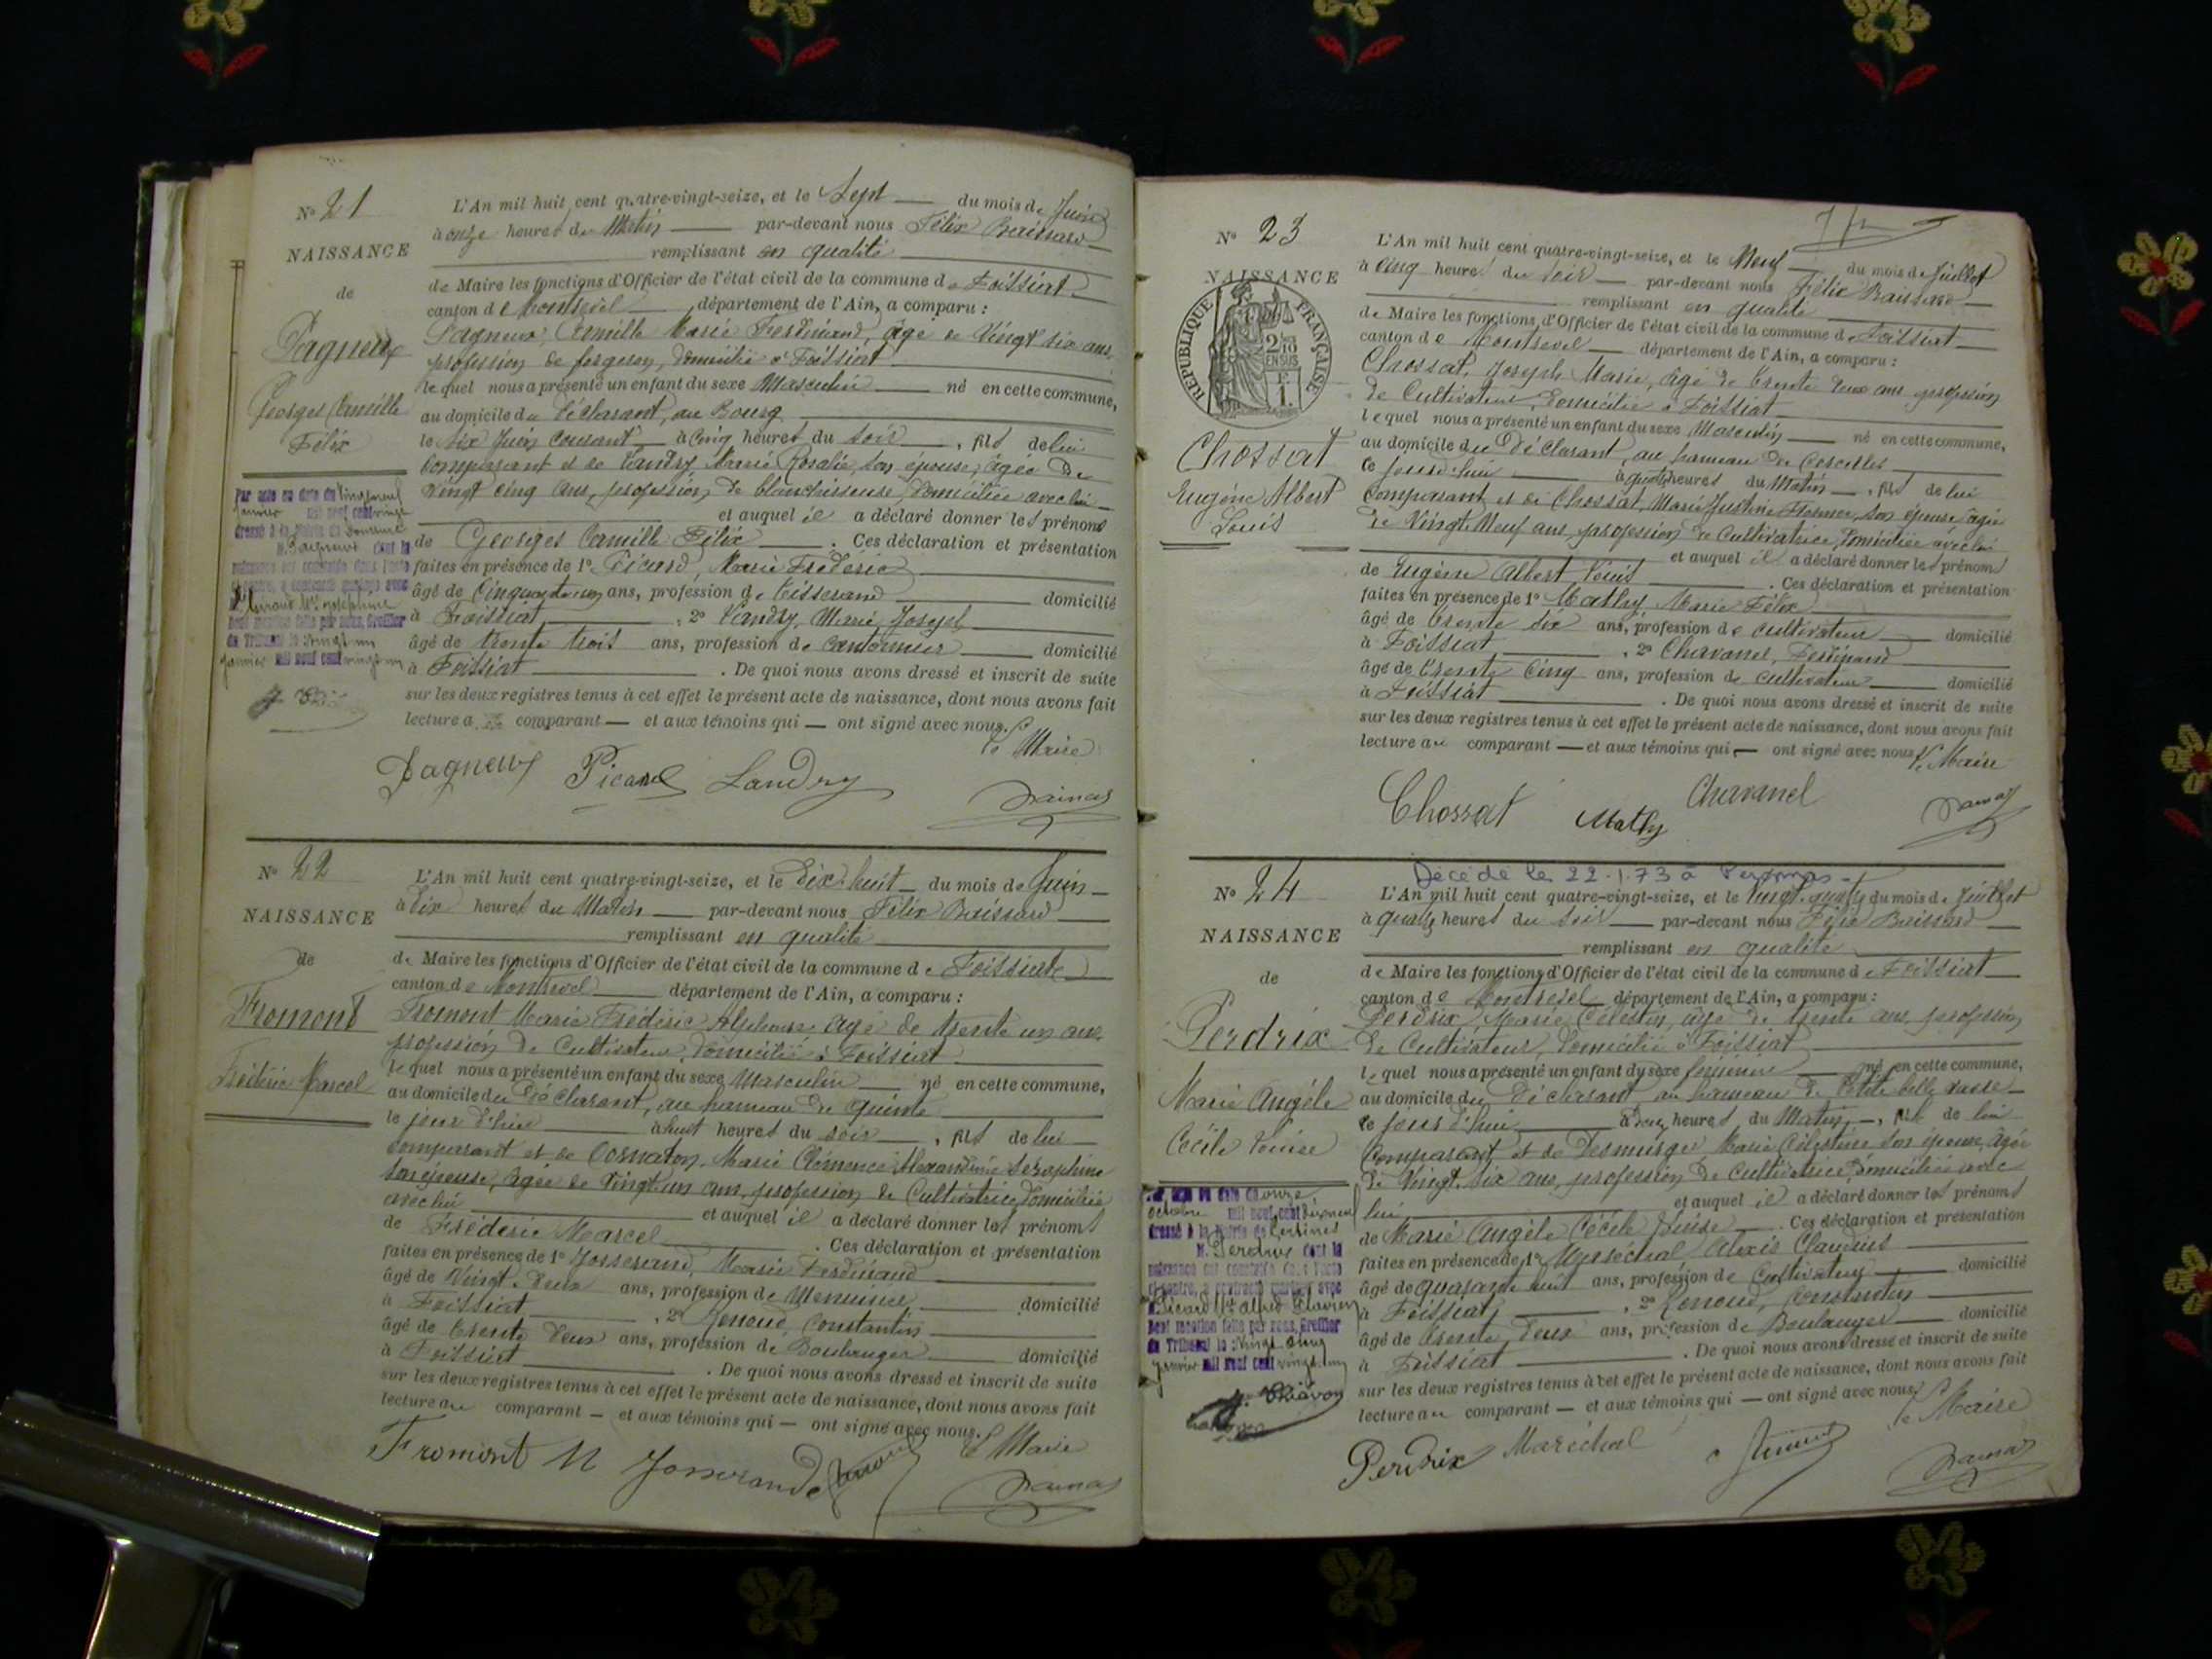 N° 21
NAISSANCE
de
Pagneux
Georges Camille
Félix
L'An mil huit cent quatre-vingt-seize, et le Sept du mois de Juin
à onze heures du Matin par-devant nous Félix Baissard
remplissant en qualité
de Maire les fonctions d'Officier de l'état civil de la commune de Foissiat
canton de Montrevel département de l'Ain, a comparu :
Pagneux, Camille Marie Ferdinand, âgé de Vingt six ans,
profession de forgeron, domicilié à Foissiat
lequel nous a présenté un enfant du sexe Masculin né en cette commune,
au domicile du Déclarant, au Bourg
le Six Juin courant à Cinq heures du soir, fils de lui
Comparant et de Landry, Marie Rosalie, son épouse, âgée de
Vingt cinq ans, profession de blanchisseuse, domiciliée avec lui
et auquel il a déclaré donner les prénoms
de Georges Camille Félix. Ces déclaration et présentation
faites en présence de 1° Picard, Marie Frédéric
âgé de Cinquante un ans, profession de Tisserand domicilié
à Foissiat, 2° Landry, Marie Joseph
âgé de trente trois ans, profession de cantonnier domicilié
à Foissiat. De quoi nous avons dressé et inscrit de suite
sur les deux registres tenus à cet effet le présent acte de naissance, dont nous avons fait
lecture au comparant et aux témoins qui ont signé avec nous.
Le Maire
Pagneux Picard Landry
Par acte en date du Vingt neuf
mil neuf cent vingt
dressé à la Mairie de
M. Pagneux dont la
naissance est constatée dans l'acte
ci-contre, a contracté mariage avec
M. Joséphine
Dont mention faite par nous, Greffier
du Tribunal le Vingt un
janvier mil neuf cent vingt un
N° 22
NAISSANCE
de
Fromont
Frédéric Marcel
L'An mil huit cent quatre-vingt-seize, et le Dix huit du mois de Juin
à Dix heures du Matin par-devant nous Félix Baissard
remplissant en qualité
de Maire les fonctions d'Officier de l'état civil de la commune de Foissiat
canton de Montrevel département de l'Ain, a comparu :
Fromont Marie Frédéric Alphonse âgé de trente un ans,
profession de Cultivateur, domicilié à Foissiat
lequel nous a présenté un enfant du sexe Masculin né en cette commune,
au domicile du Déclarant, au hameau de
le jour d'hui à huit heures du soir, fils de lui
Comparant et de Cornaton, Marie Clémence Alexandrine Séraphine
son épouse, âgée de Vingt un ans, profession de Cultivatrice, domiciliée
avec lui et auquel il a déclaré donner les prénoms
de Frédéric Marcel. Ces déclaration et présentation
faites en présence de 1° Josserand, Marie Ferdinand
âgé de Vingt Deux ans, profession de Menuisier domicilié
à Foissiat, 2° Renoud, Constantin
âgé de trente Deux ans, profession de Boulanger domicilié
à Foissiat. De quoi nous avons dressé et inscrit de suite
sur les deux registres tenus à cet effet le présent acte de naissance, dont nous avons fait
lecture au comparant et aux témoins qui ont signé avec nous.
Le Maire
Fromont M Josserand
N° 23
NAISSANCE
REPUBLIQUE FRANÇAISE
2/10 EN SUS
Chossat
Eugène Albert
Louis
L'An mil huit cent quatre-vingt-seize, et le Neuf du mois de Juillet
à Cinq heures du soir par-devant nous Félix Baissard
remplissant en qualité
de Maire les fonctions d'Officier de l'état civil de la commune de Foissiat
canton de Montrevel département de l'Ain, a comparu :
Chossat, Joseph Marie, âgé de trente Deux ans profession
de Cultivateur, domicilié à Foissiat
lequel nous a présenté un enfant du sexe Masculin né en cette commune,
au domicile du Déclarant, au hameau de
ce jourd'hui à quatre heures du Matin, fils de lui
Comparant et de Chossat, Marie Justine son épouse, âgée
de Vingt Neuf ans, profession de Cultivatrice, domiciliée avec lui
et auquel il a déclaré donner les prénoms
de Eugène Albert Louis. Ces déclaration et présentation
faites en présence de 1° Mathy, Marie Félix
âgé de trente six ans, profession de cultivateur domicilié
à Foissiat, 2° Chavanel, Ferdinand
âgé de trente Cinq ans, profession de cultivateur domicilié
à Foissiat. De quoi nous avons dressé et inscrit de suite
sur les deux registres tenus à cet effet le présent acte de naissance, dont nous avons fait
lecture au comparant et aux témoins qui ont signé avec nous.
Le Maire
Chossat Mathy Chavanel
Décédé le 22.1.73 à
N° 24
NAISSANCE
de
Perdrix
Marie Angèle
Cécile Louise
L'An mil huit cent quatre-vingt-seize, et le Vingt quatre du mois de Juillet
à quatre heures du soir par-devant nous Félix Baissard
remplissant en qualité
de Maire les fonctions d'Officier de l'état civil de la commune de Foissiat
canton de Montrevel département de l'Ain, a comparu :
Perdrix, Marie Célestin, âgé de trente ans, profession
de Cultivateur, domicilié à Foissiat
lequel nous a présenté un enfant du sexe féminin né en cette commune,
au domicile du Déclarant, au hameau de Petite belle vavre
ce jour d'hui à Deux heures du Matin, fille de lui
Comparant et de Desmurger Marie Célestine son épouse, âgée
de Vingt six ans, profession de cultivatrice, domiciliée avec
lui et auquel il a déclaré donner les prénoms
de Marie Angèle Cécile Louise. Ces déclaration et présentation
faites en présence de 1° Maréchal Alexis Claudius
âgé de quarante huit ans, profession de Cultivateur domicilié
à Foissiat, 2° Renoud, Constantin
âgé de trente Deux ans, profession de Boulanger domicilié
à Foissiat. De quoi nous avons dressé et inscrit de suite
sur les deux registres tenus à cet effet le présent acte de naissance, dont nous avons fait
lecture au comparant et aux témoins qui ont signé avec nous.
Le Maire
Perdrix Maréchal
Par acte en date du onze
octobre mil neuf cent dix neuf
dressé à la Mairie de
M. Perdrix dont la
naissance est constatée dans l'acte
ci-contre, a contracté mariage avec
Picard Alfred
Dont mention faite par nous, Greffier
du Tribunal le Vingt cinq
janvier mil neuf cent vingt un